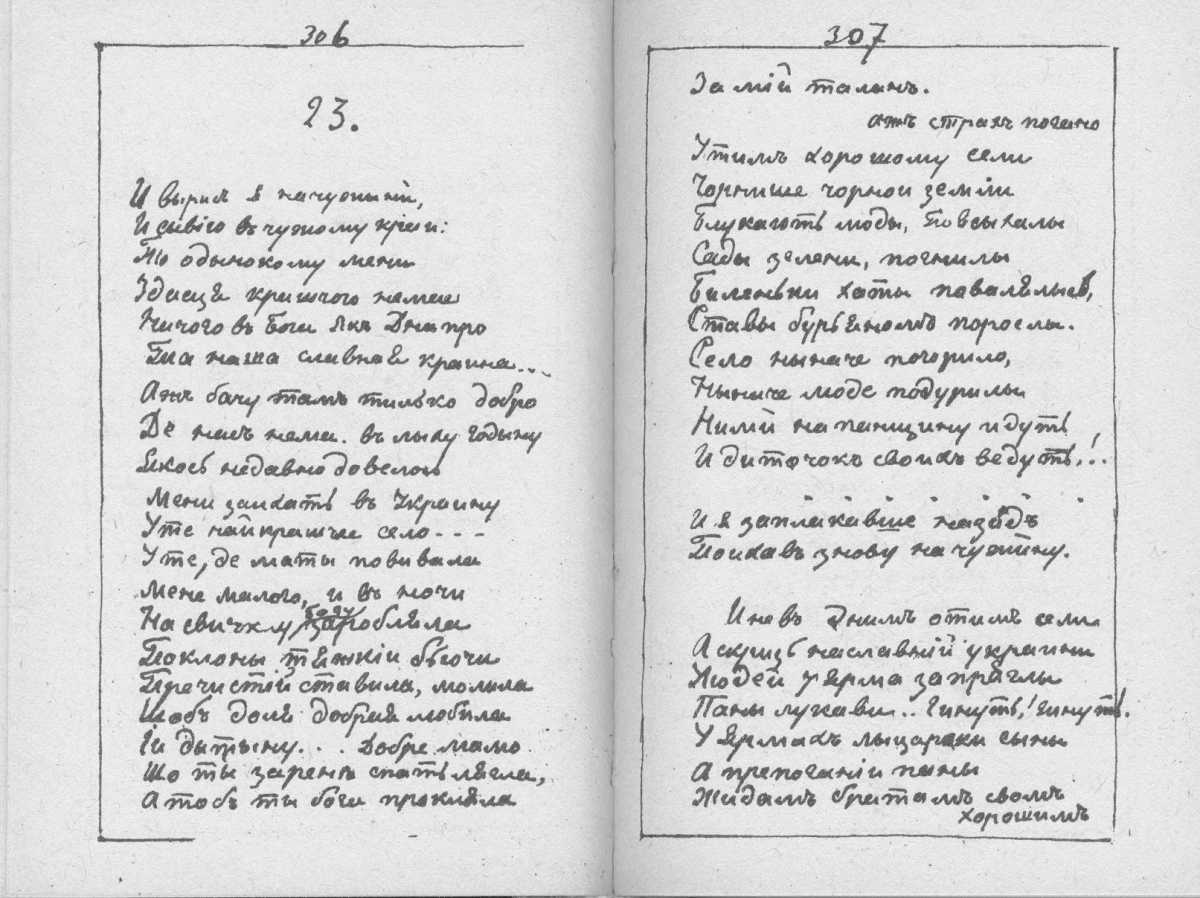 306
23.
И вырис я на чужыни,
И сывію в чужому краи:
То одынокому мени
Здаецця кращого немае
Ничого в Бога як Днипро
Та наша славная краина...
Аж бачу там тилько добро
Де нас нема. въ лыху годыну
Якось недавно довелось
Мени заихать въ Украину
У те найкраще село - - -
У те, де маты повивала
Мене малого, и въ ночи
На свичку Богу заробляла
Поклоны тяжкіи бьючи
Пречистій ставила, молила
Щобъ доля добрая любила
Ии дытыну... Добре мамо
Що ты зарение спать лягла,
А тобъ ты бога прокляла
307
За мій таланъ.
ажъ страхъ погано
У тимъ хорошому сели
Чорнише чорнои земли
Блукають люды, повсыхалы
Сады зелени, погнилы
Биленьки хаты повалялысь,
Ставы бурьяномъ порослы.
Село ныначе погорило,
Ныначе люде подурилы
Нимій на панщину идуть
И диточокъ своихъ ведуть!..
И я заплакавше назадъ
Поихавъ знову на чужину.
И не въ однимъ отимъ сели
А скризь на славній украини
Людей у ярма запряглы
Паны лукави.. Гинуть! гинуть.
У ярмахъ лыцарски сыны
А препоганіи паны
Жидамъ братамъ своимъ
хорошимъ